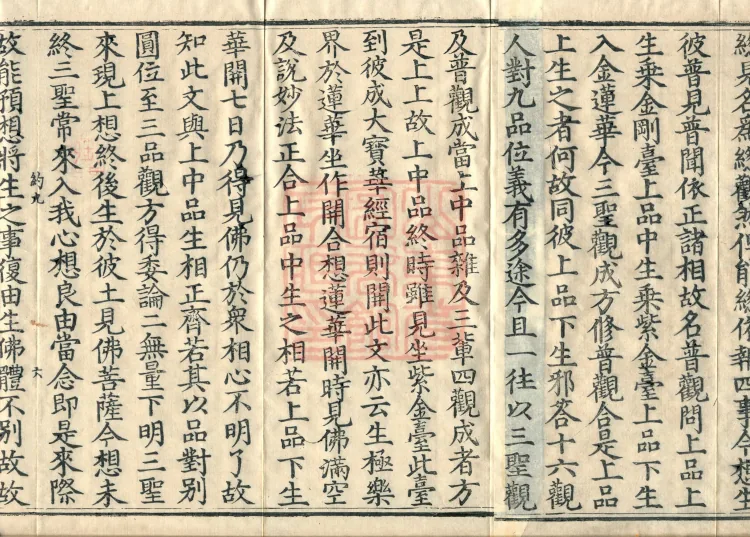 彼普見普聞依正諸相故名普觀問上品上
生乘金剛臺上品中生乘紫金臺上品下生
入金蓮華今三聖觀成方修普觀合是上品
上生之者何故同彼上品下生邪答十六觀
人對九品位義有多途今且一往以三聖觀
及普觀成當上中品雜及三輩四觀成者方
是上上故上中品終時雖見坐紫金臺此臺
到彼成大寶華經宿則開此文亦云生極樂
界於蓮華坐作開合想蓮華開時見佛滿空
及說妙法正合上品中生之相若上品下生
華開七日乃得見佛仍於衆相心不明了故
知此文與上中品生相正齊若其以品對別
圓位至三品觀方得委論二無量下明三聖
來現上想終後生於彼土見佛菩薩今想未
終三聖常來入我心想良由當念即是來際
約九
六
故能預想將生之事復由生佛體不別故故